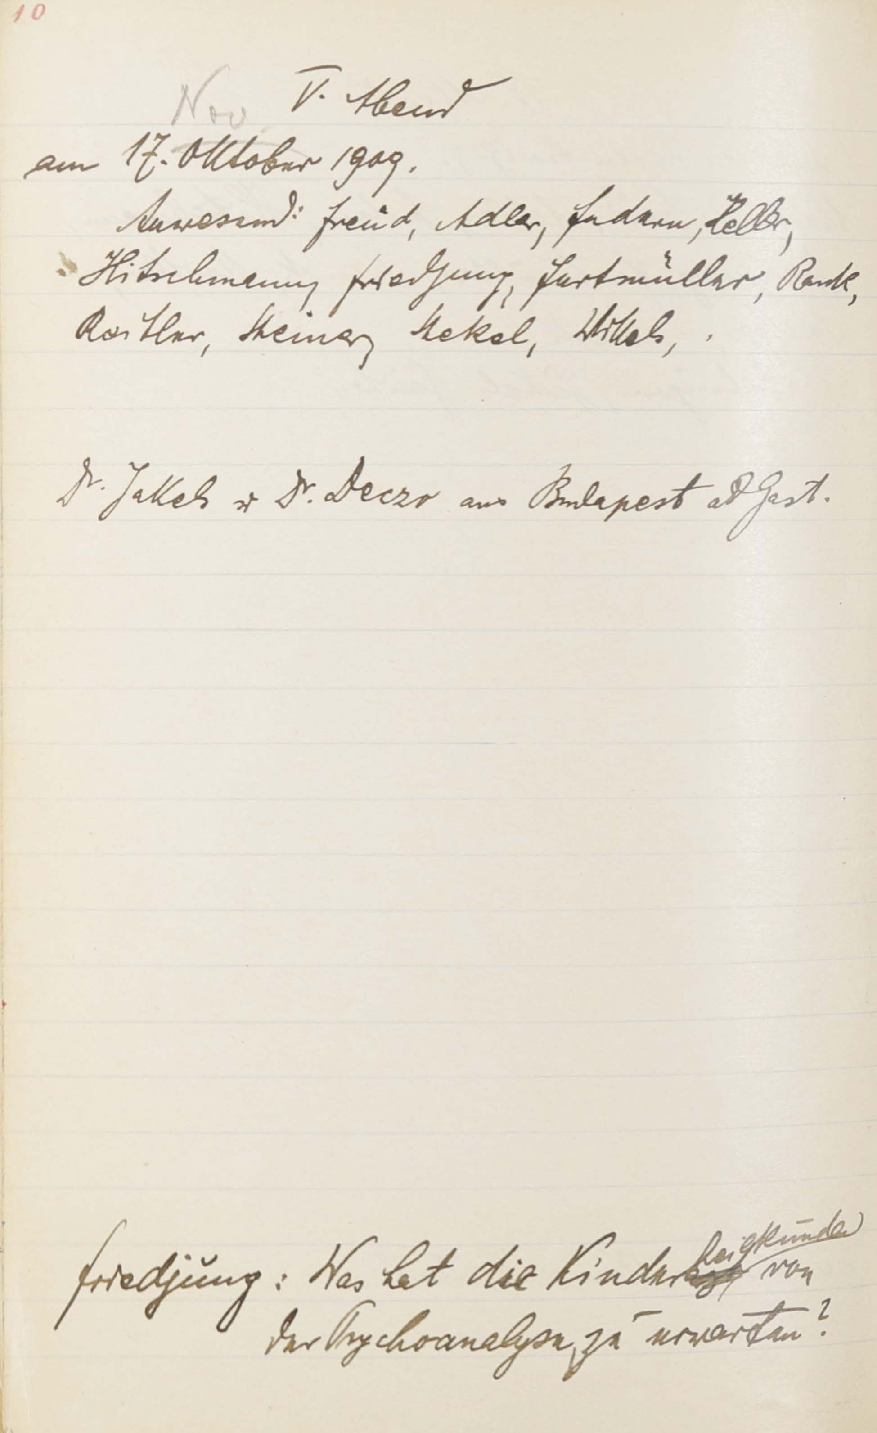 10
V. Abend
Nov
am 17. Oktober 1909.
Anwesend: Freud, Adler, Federn, Heller,
Hitschmann, Friedjung, Furtmüller, Rank,
Reitler, Steiner, Stekel, Wittels,
Dr. Jekels u Dr. Deczo aus Budapest als Gast.
Friedjung: Was hat die Kinderheilkunde von
der Psychoanalyse zu erwarten?